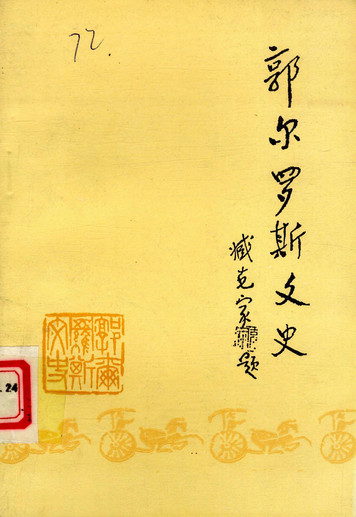 72.
郭尔罗斯文史
臧克家题
郭爾羅斯文史
.24